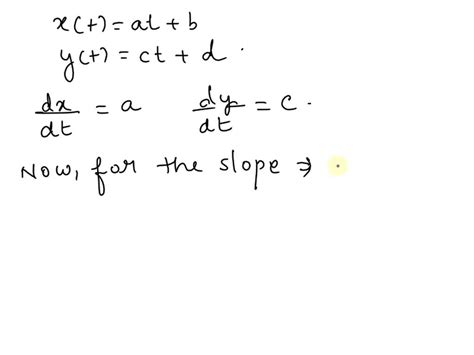 x(t) = at + b
y(t) = ct + d .
dx/dt = a dy/dt = c .
Now, for the slope ⇒